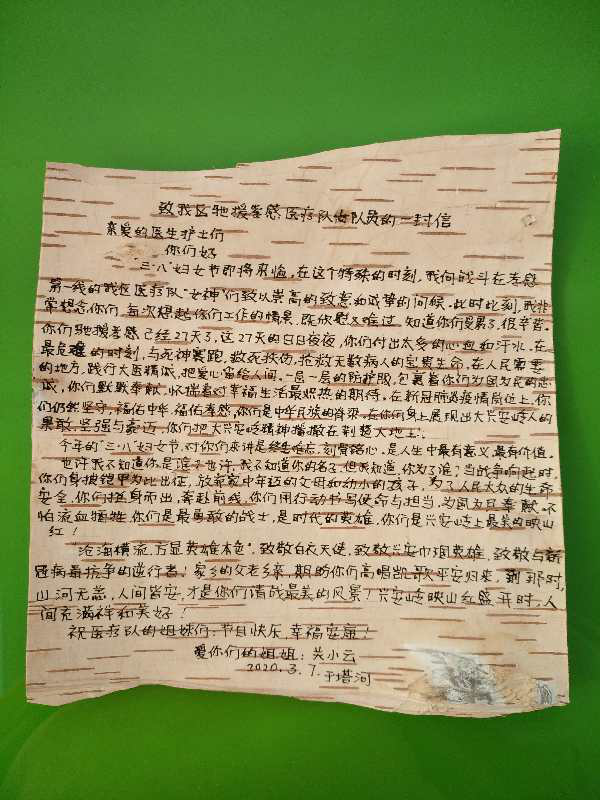 致我区驰援孝感医疗队女队员的一封信
亲爱的医生护士们
你们好
三·八"妇女节即将来临,在这个特殊的时刻,我向战斗在孝感
第一线的我区医疗队"女神"们致以崇高的致意和诚挚的问候。此时此刻,我非
常想念你们,每次想起你们工作的情景,既欣慰又难过,知道你们受累了,很辛苦。
你们驰援孝感已经27天了,这27天的日日夜夜,你们付出太多的心血和汗水,在
最危难的时刻,与死神赛跑,救死扶伤,抢救无数病人的宝贵生命,在人民需要
的地方,践行大医精诚,把爱心留给人间。一层一层的防护服,包裹着你们为国为民的忠
诚,你们默默奉献,怀揣着对幸福生活最炽热的期待。在新冠肺炎疫情岗位上,你
们仍然坚守,福佑中华,福佑孝感,你们是中华民族的脊梁,在你们身上展现出大兴安岭人的
果敢、坚强与豪迈,你们把大兴安岭精神播撒在荆楚大地上。
今年的"三·八"妇女节,对你们来讲是终生难忘,刻骨铭心,是人生中最有意义最有价值。
也许我不知道你是谁?也许我不知道你的名子,但我知道,你为了谁?当战争响起时,
你们身披铠甲为此出征,放弃家中年迈的父母和幼小的孩子,为了人民大众的生命
安全,你们挺身而出,奔赴前线,你们用行动书写使命与担当,为国为民奉献,不
怕流血牺牲,你们是最勇敢的战士,是时代的英雄,你们是兴安岭上最美的映山
红!
沧海横流,方显英雄本色",致敬白衣天使,致敬兴安巾帼英雄,致敬与新
冠病毒抗争的逆行者!家乡的父老乡亲,期盼你们高唱凯歌平安归来,到那时,
山河无恙,人间皆安,才是你们请战最美的风景!兴安岭映山红盛开时,人
间充满祥和美好!
祝医疗队的姐妹们:节日快乐,幸福安康!
爱你们的姐姐:关小云
2020.3.7.于塔河